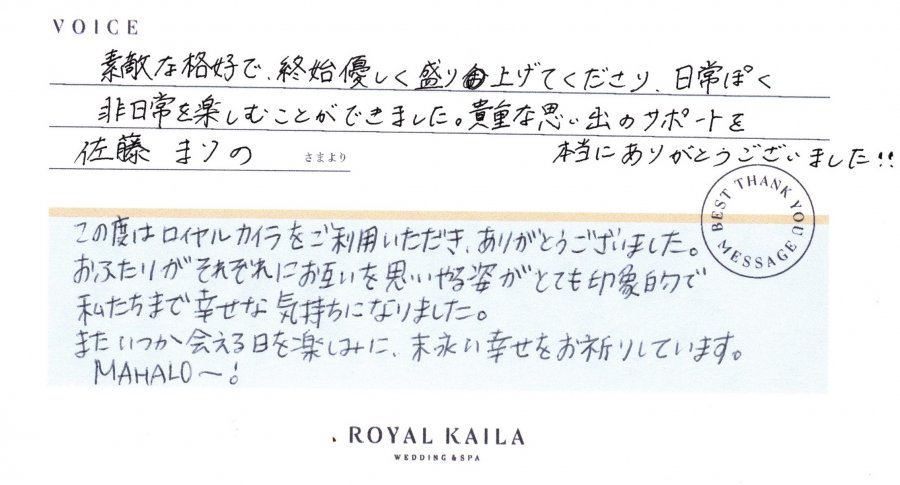 VOICE
素敵な格好で、終始優しく盛り上げてくださり、日常ぽく
非日常を楽しむことができました。貴重な思い出のサポートを
佐藤 まりの さまより 本当にありがとうございました!!
BEST THANK YOU MESSAGE
この度はロイヤルカイラをご利用いただき、ありがとうございました。
おふたりがそれぞれにお互いを思いやる姿がとても印象的で
私たちまで幸せな気持ちになりました。
またいつか会える日を楽しみに、末永い幸せをお祈りしています。
MAHALO〜!
ROYAL KAILA
WEDDING & SPA